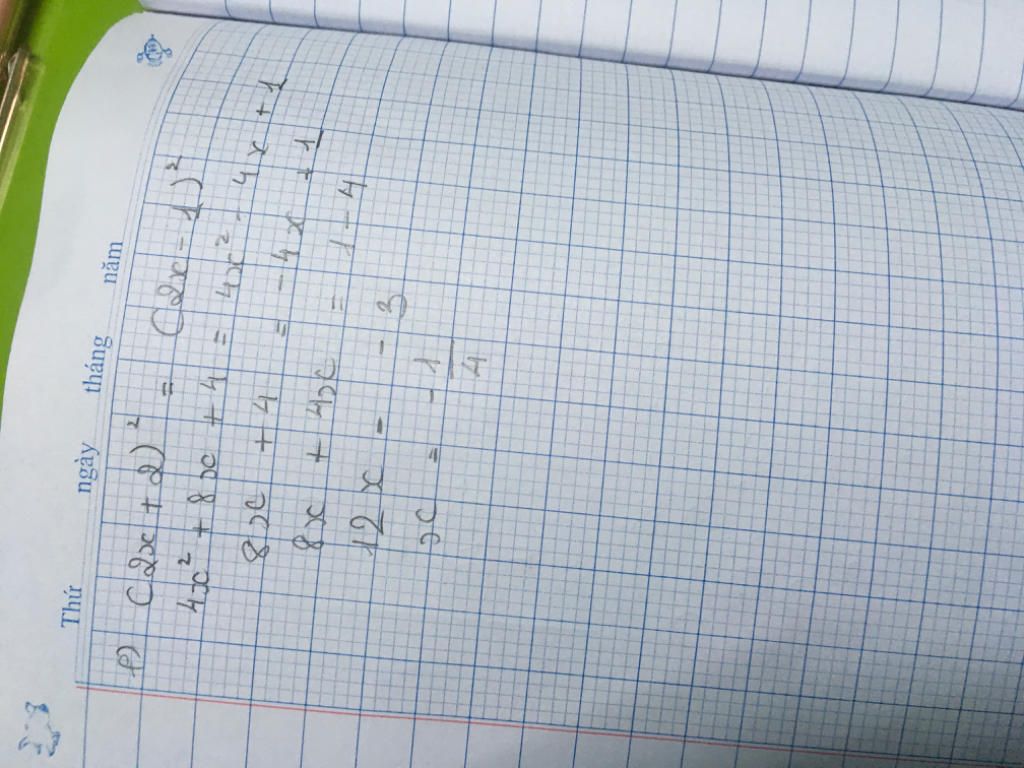 Thứ ngày tháng năm
f) (2x+2)² = (2x-1)²
4x² + 8x + 4 = 4x² - 4x + 1
8x + 4 = -4x + 1
8x + 4x = 1 - 4
12x = -3
x = -1/4